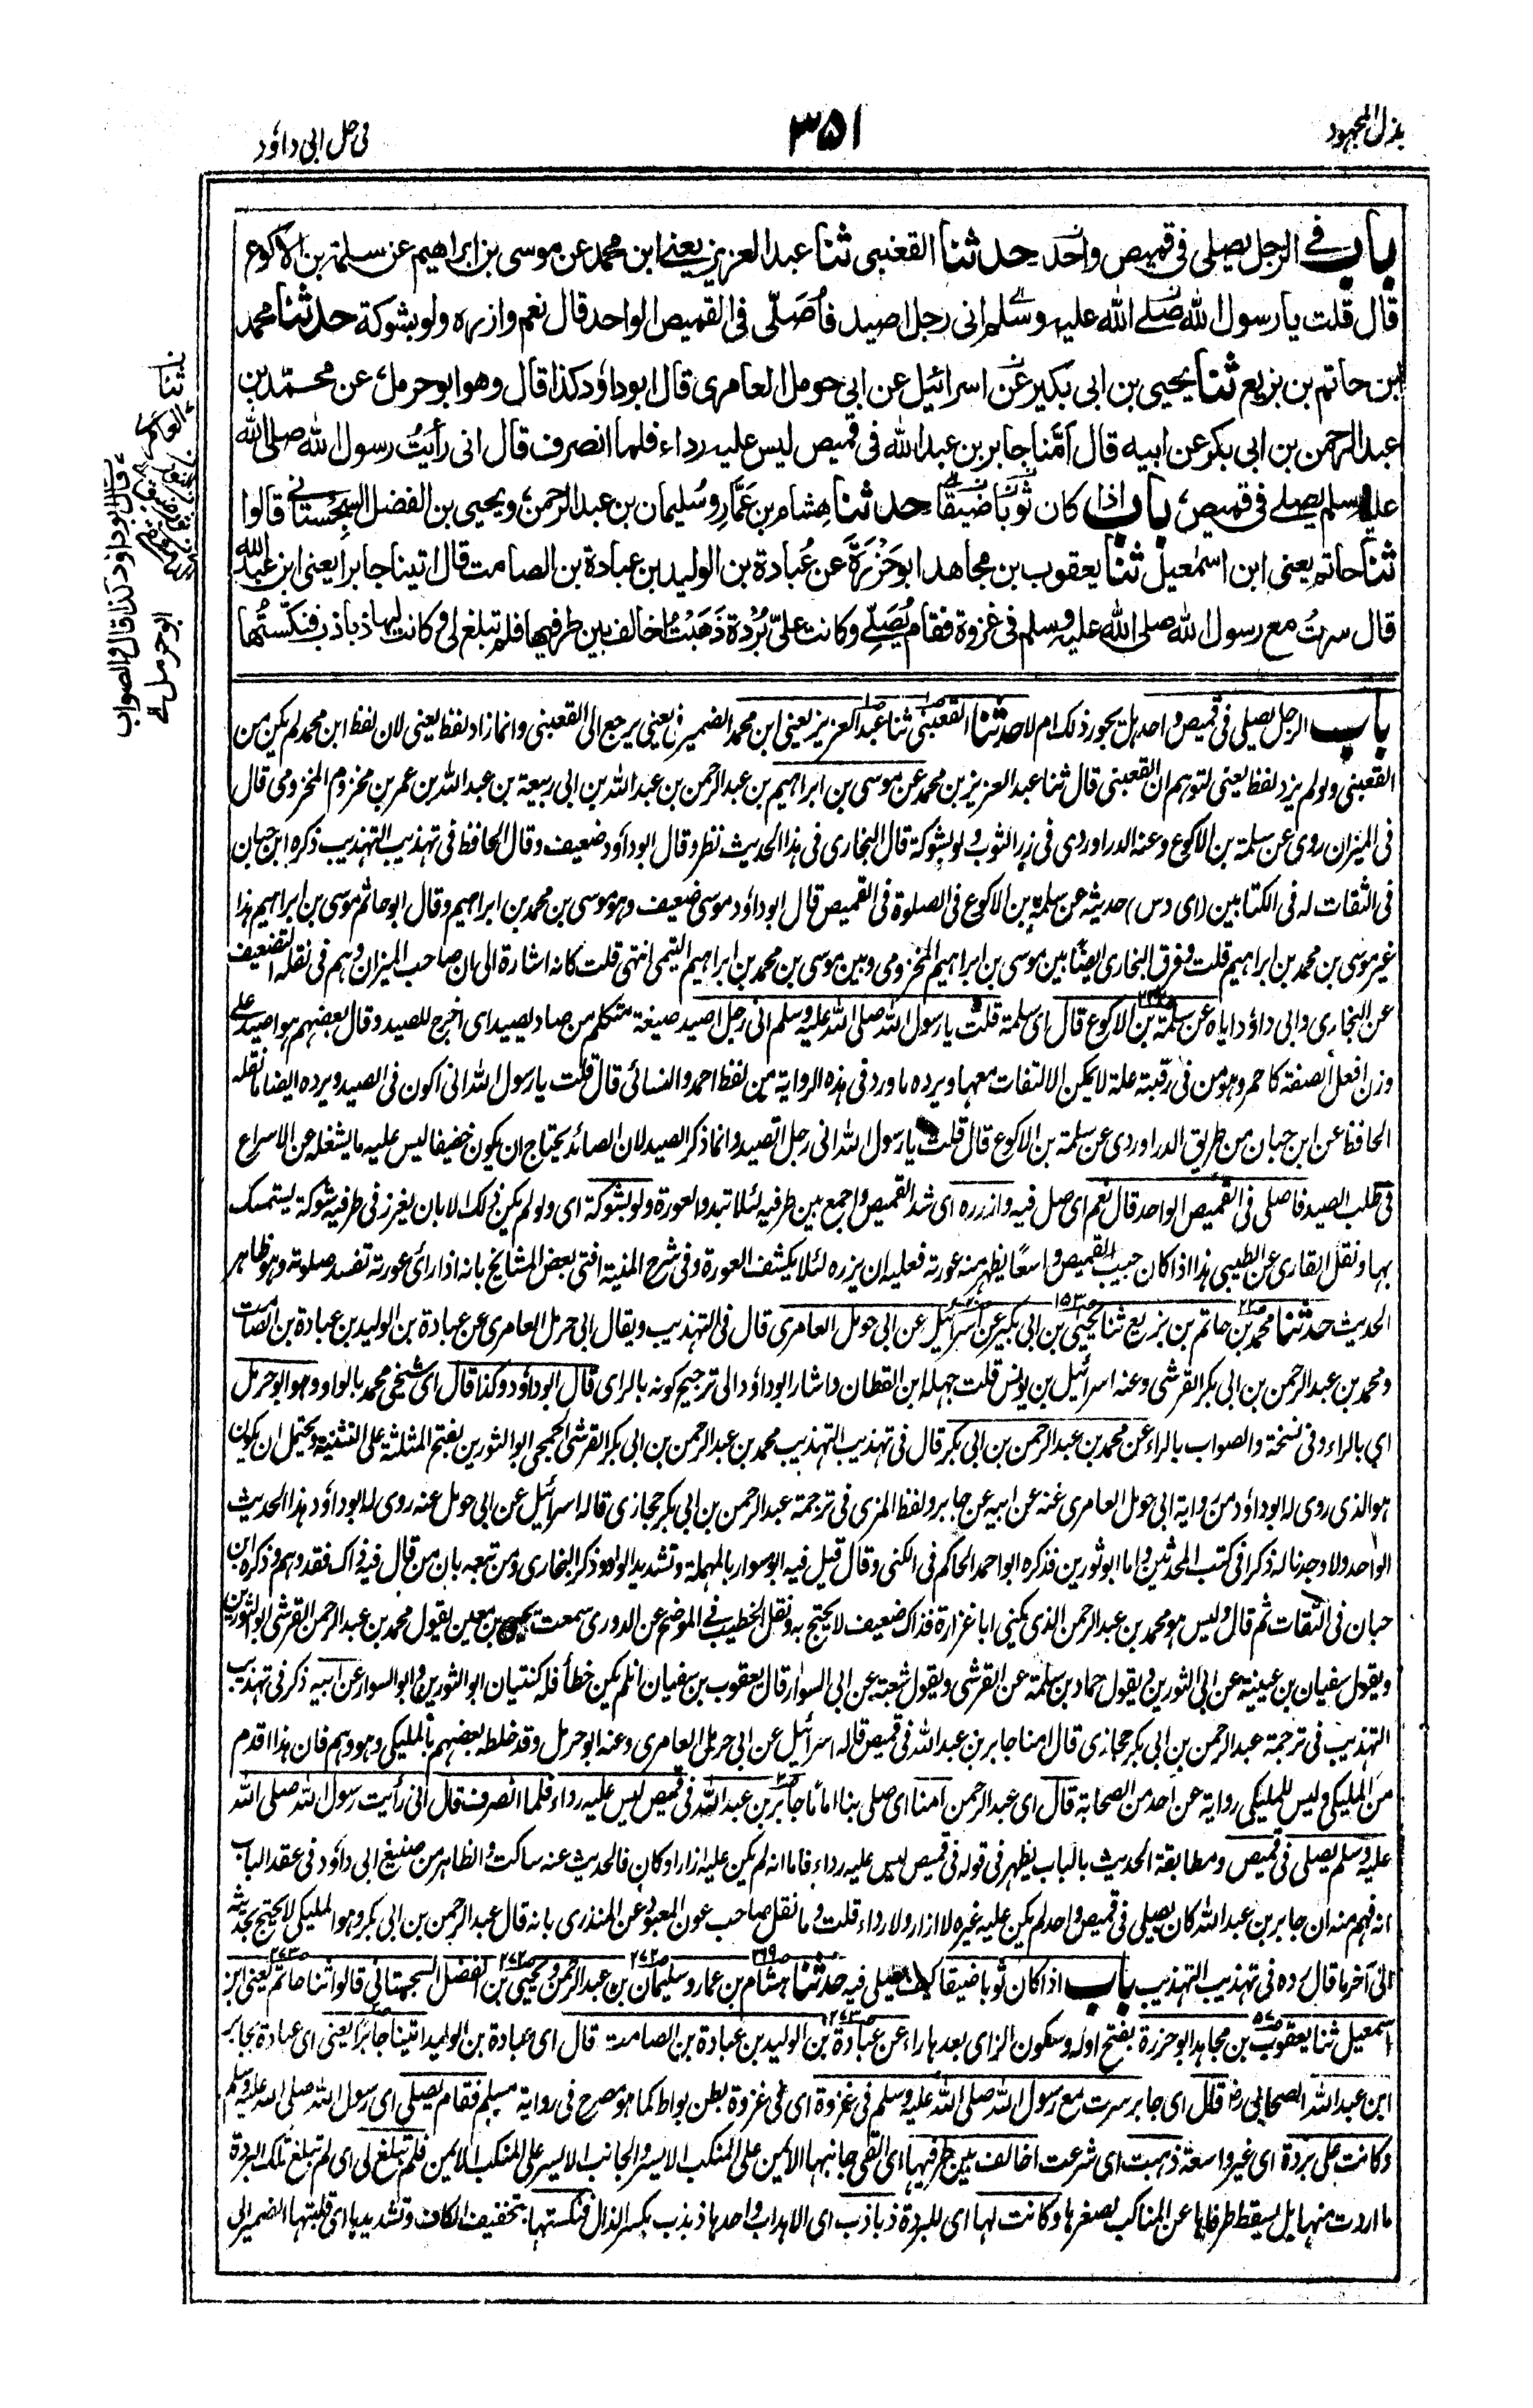 بذل المجهود
٣٥١
فى حل ابى داؤد
باب في الرجل يصلى فى قميص واحد حدثنا القعنبى ثنا عبد العزيز يعنى ابن محمد عن موسى بن ابراهيم عن سلمة بن الاكوع
قال قلت يا رسول الله صلى الله عليه وسلم انى رجل اصيد فأصلّى فى القميص الواحد قال نعم وازرره ولو بشوكة حدثنا محمد
ابن حاتم بن بزيع ثنا يحيى بن ابى بكير عن اسرائيل عن ابى حومل العامرى قال ابوداؤد كذا قال وهو ابو حرمل عن محمّد بن
عبد الرحمن بن ابى بكر عن ابيه قال أمّنا جابر بن عبد الله فى قميص ليس عليه رداء فلما انصرف قال انى رأيتُ رسول الله صلى الله
عليه وسلم يصلى فى قميص، باب اذا كان ثوبًا ضيقًا حدثنا هشام بن عمّار وسُليمان بن عبد الرحمن ويحيى بن الفضل السجستانى قالوا
ثنا حاتم يعنى ابن اسمعيل ثنا يعقوب بن مجاهد ابو حَزْرَةَ عن عُبادة بن الوليد بن عبادة بن الصامت قال اتينا جابرا يعنى ابن عبد الله
قال سرتُ مع رسول الله صلى الله عليه وسلم فى غزوة فقام يُصَلّى وكانت علىّ بُرْدة ذَهَبْتُ اخالف بين طرفيها فلم تبلغ لى وكانت لها ذباذب فنكّستُها
ثنا
قال ابو داؤد كذا قال والصواب
ابو حرمل
باب الرجل يصلى فى قميص واحد هل يجوز ذلك ام لا حدثنا القعنبى ثنا عبد العزيز يعنى ابن محمد الضمير فى يعنى يرجع الى القعنبى وانما زاد لفظ يعنى لان لفظ ابن محمد لم يكن من
القعنبى ولو لم يزد لفظ يعنى لتوهم ان القعنبى قال ثنا عبد العزيز بن محمد عن موسى بن ابراهيم بن عبد الرحمن بن عبد الله بن ابى ربيعة بن عبد الله بن عمر بن مخزوم المخزومى قال
فى الميزان روى عن سلمة بن الاكوع وعنه الدراوردى فى زر الثوب ولو بشوكة قال البخارى فى هذا الحديث نظر وقال ابو داؤد ضعيف وقال الحافظ فى تهذيب التهذيب ذكره ابن حبان
فى الثقات له فى الكتابين (اى دس) حديثه عن سلمة بن الاكوع فى الصلوة فى القميص قال ابو داؤد موسى ضعيف وهو موسى بن محمد بن ابراهيم وقال ابو حاتم موسى بن ابراهيم هذا
غير موسى بن محمد بن ابراهيم قلت وفرق البخارى ايضًا بين موسى بن ابراهيم المخزومى وبين موسى بن محمد بن ابراهيم التيمى انتهى قلت كانه اشارة الى ان صاحب الميزان وهم فى نقله التضعيف
عن البخارى وابى داؤد اياه عن سلمة بن الاكوع قال اى سلمة قلت يا رسول الله صلى الله عليه وسلم انى رجل اصيد صيغة متكلم من صاد يصيد اى اخرج للصيد وقال بعضهم هو اصيد على
وزن افعل الصفة كاحمر وهو من فى رقبته علة لا يمكن الالتفات معها ويرده ما ورد فى هذه الرواية من لفظ احمد والنسائى قال قلت يا رسول الله انى اكون فى الصيد ويرده ايضا ما نقله
الحافظ عن ابن حبان من طريق الدراوردى عن سلمة بن الاكوع قال قلت يا رسول الله انى رجل اتصيد وانما ذكر الصيد لان الصائد يحتاج ان يكون خفيفا ليس عليه ما يشغله عن الاسراع
فى طلب الصيد فاصلى فى القميص الواحد قال نعم اى صل فيه وازرره اى شد القميص واجمع بين طرفيه لئلا تبدو العورة ولو بشوكة اى ولو لم يكن ذلك الا بان يغرز فى طرفيه شوكة يستمسك
بها ونقل القارى عن الطيبى هذا اذا كان جيب القميص واسعًا يظهر منه عورته فعليه ان يزره لئلا يكشف العورة وفى شرح المنية افتى بعض المشايخ بانه اذا رأى عورته تفسد صلوته وهو ظاهر
الحديث حدثنا محمد بن حاتم بن بزيع ثنا يحيى بن ابى بكير عن اسرائيل عن ابى حومل العامرى قال فى التهذيب ويقال ابى حرمل العامرى عن عبادة بن الوليد بن عبادة بن الصامت
ومحمد بن عبد الرحمن بن ابى بكر القرشى وعنه اسرائيل بن يونس قلت جهله ابن القطان واشار ابو داؤد الى ترجيح كونه بالراى قال ابو داؤد وكذا قال اى شيخى محمد بالواو وهو ابو حرمل
اى بالراء وفى نسخة والصواب بالراء عن محمد بن عبد الرحمن بن ابى بكر قال فى تهذيب التهذيب محمد بن عبد الرحمن بن ابى بكر القرشى الجمحى ابو الثورين بفتح المثلثة على التثنية ويحتمل ان يكون
هو الذى روى له ابو داؤد من رواية ابى حومل العامرى عنه عن ابيه عن جابر ولفظ المزى فى ترجمة عبد الرحمن بن ابى بكر حجازى قاله اسرائيل عن ابى حومل عنه روى له ابو داؤد هذا الحديث
الواحد ولا وجدنا له ذكرا فى كتب المحدثين واما ابو ثورين فذكره ابو احمد الحاكم فى الكنى وقال قيل فيه ابو سوار بالمهملة وتشديد الواو وذكر البخارى ومن تبعه بان من قال فيه ذاك فقد وهم وذكره ابن
حبان فى الثقات ثم قال وليس هو محمد بن عبد الرحمن الذى يكنى ابا غرارة فذاك ضعيف لا يحتج به ونقل الخطيب فى الموضح عن الدورى سمعت يحيى بن معين يقول محمد بن عبد الرحمن القرشى ابو الثورين
ويقول سفيان بن عيينة عن ابى الثورين ويقول حماد بن سلمة عن القرشى ويقول شعبة عن ابى السوار قال يعقوب بن سفيان ان لم يكن خطأ فله كنيتان ابو الثورين وابو السوار عن ابيه ذكر فى تهذيب
التهذيب فى ترجمة عبد الرحمن بن ابى بكر حجازى قال امنا جابر بن عبد الله فى قميص قاله اسرائيل عن ابى حرمل العامرى وعنه ابو حرمل وقد خلطه بعضهم بالمليكى وهو وهم فان هذا اقدم
من المليكى وليس للمليكى رواية عن احد من الصحابة قال اى عبد الرحمن امنا اى صلى بنا امامًا جابر بن عبد الله فى قميص ليس عليه رداء فلما انصرف قال انى رأيت رسول الله صلى الله
عليه وسلم يصلى فى قميص ومطابقة الحديث بالباب يظهر فى قوله فى قميص ليس عليه رداء فاما انه لم يكن عليه ازار او كان فالحديث عنه ساكت والظاهر من صنيع ابى داؤد فى عقد الباب
انه فهم منه ان جابر بن عبد الله كان يصلى فى قميص واحد لم يكن عليه غيره لا ازار ولا رداء قلت وما نقل صاحب عون المعبود عن المنذرى بانه قال عبد الرحمن بن ابى بكر وهو المليكى لا يحتج بحديثه
الى آخر ما قال رده فى تهذيب التهذيب باب اذا كان ثوبا ضيقا كيف يصلى فيه حدثنا هشام بن عمار وسليمان بن عبد الرحمن ويحيى بن الفضل السجستانى قالوا ثنا حاتم يعنى ابن
اسمعيل ثنا يعقوب بن مجاهد ابو حزرة بفتح اوله وسكون الزاى بعدها راء عن عبادة بن الوليد بن عبادة بن الصامت قال اى عبادة بن الوليد اتينا جابرا يعنى اى عبادة بجابر
ابن عبد الله الصحابى رض قال اى جابر سرت مع رسول الله صلى الله عليه وسلم فى غزوة اى فى غزوة بطن بواط كما هو مصرح فى رواية مسلم فقام يصلى اى رسول الله صلى الله عليه وسلم
وكانت على بردة اى غير واسعة ذهبت اى شرعت اخالف بين طرفيها اى القى جانبها الايمن على المنكب الايسر والجانب الايسر على المنكب الايمن فلم تبلغ لى اى لم تبلغ تلك البردة
ما اردت منها بل يسقط طرفاها عن المناكب لصغرها وكانت لها اى للبردة ذباذب اى الاهداب واحدها ذبذب بكسر الذال فنكستها بتخفيف الكاف وتشديدها اى قلبتها الضمير الى